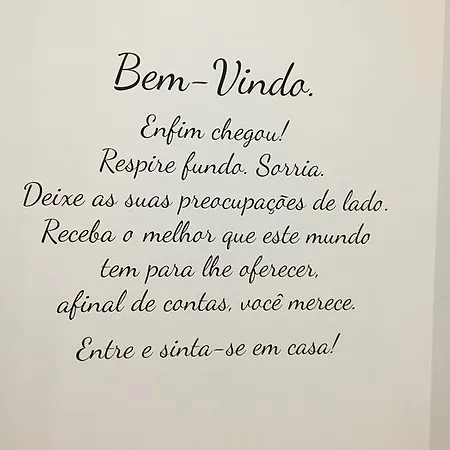 Bem-Vindo.
Enfim chegou!
Respire fundo. Sorria.
Deixe as suas preocupações de lado.
Receba o melhor que este mundo
tem para lhe oferecer,
afinal de contas, você merece.
Entre e sinta-se em casa!